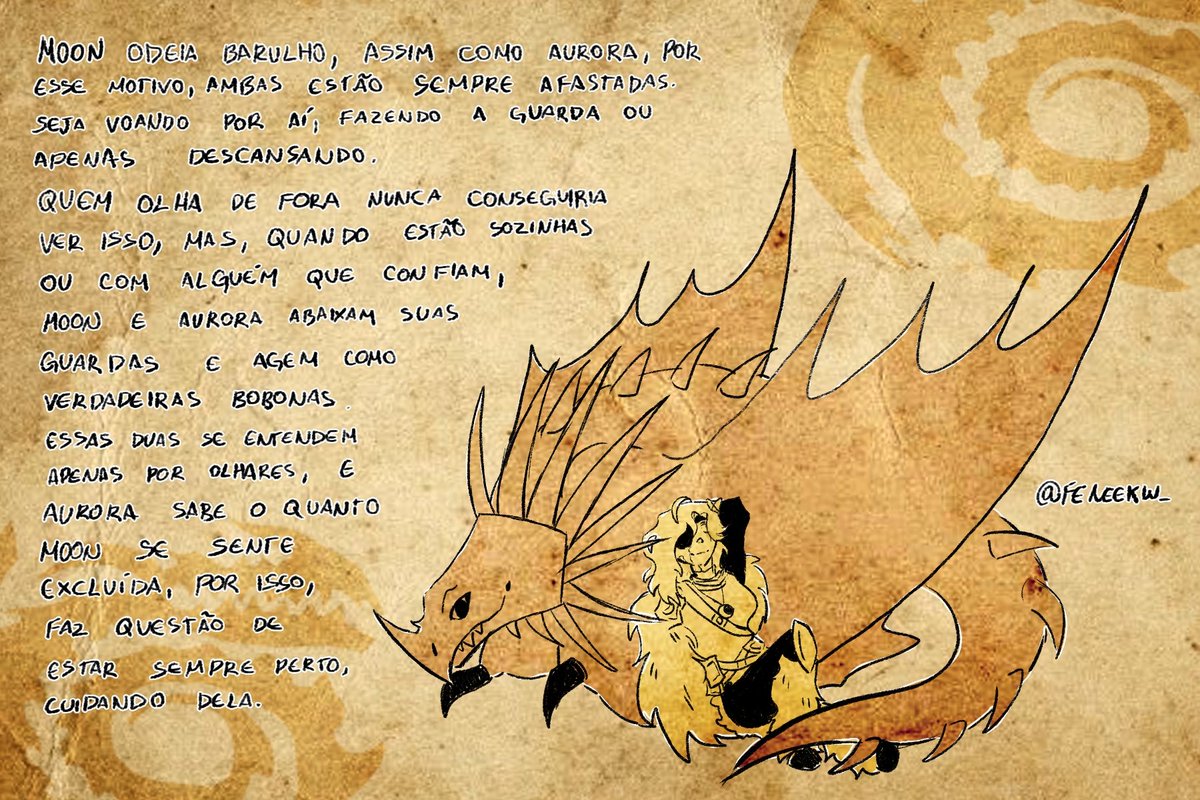 MOON ODEIA BARULHO, ASSIM COMO AURORA, POR
ESSE MOTIVO, AMBAS ESTÃO SEMPRE AFASTADAS.
SEJA VOANDO POR AÍ, FAZENDO A GUARDA OU
APENAS DESCANSANDO.
QUEM OLHA DE FORA NUNCA CONSEGUIRIA
VER ISSO, MAS, QUANDO ESTÃO SOZINHAS
OU COM ALGUÉM QUE CONFIAM,
MOON E AURORA ABAIXAM SUAS
GUARDAS E AGEM COMO
VERDADEIRAS BOBONAS.
ESSAS DUAS SE ENTENDEM
APENAS POR OLHARES, E
AURORA SABE O QUANTO
MOON SE SENTE
EXCLUÍDA, POR ISSO,
FAZ QUESTÃO DE
ESTAR SEMPRE PERTO,
CUIDANDO DELA.
@FENEEKW_